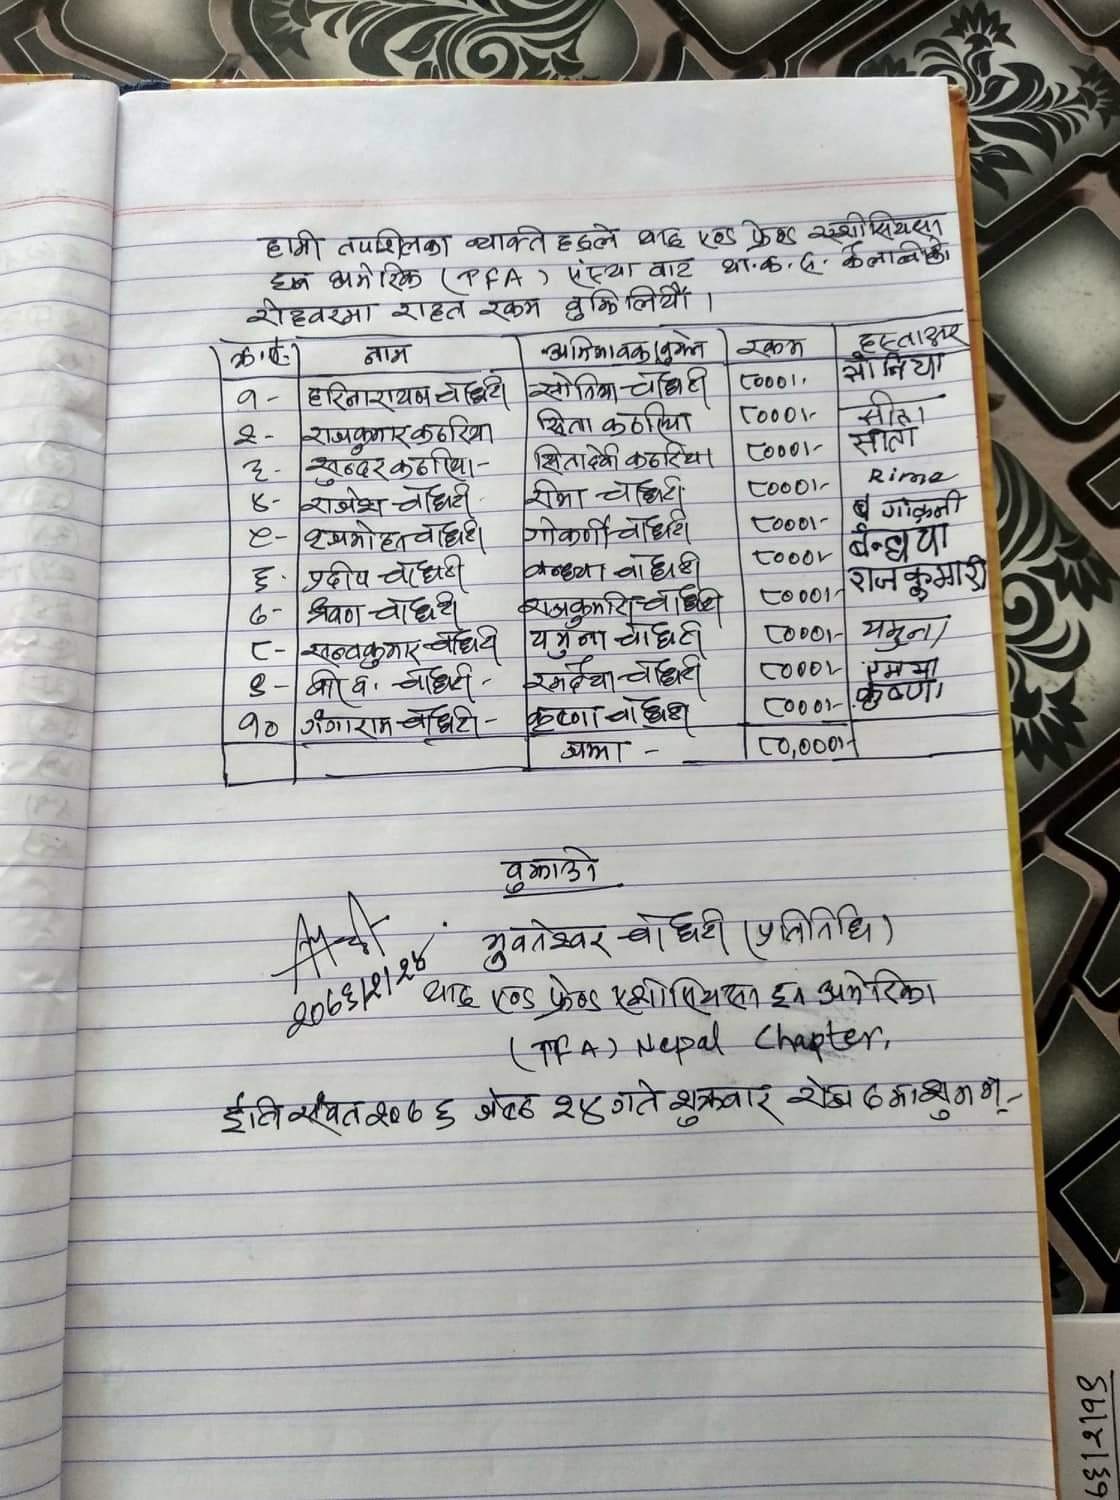 हामी तपशिलका व्यक्ति हरुले थारु एण्ड फ्रेण्ड एशोसियसन
इन अमेरिका (TFA) संस्था बाट था.क.स. कैलालीको
रोहवरमा राहत रकम बुझिलियौं ।
क्र.सं. नाम अभिभावक/बुझ्ने रकम हस्ताक्षर
१- हरिनारायण चौधरी सोनिया चौधरी ८०००।- सोनिया
२- राजकुमार कठरिया सिता कठरिया ८०००।- सीता
३- सुन्दर कठरिया- सितादेवी कठरिया ८०००।- सीता
४- राजेश चौधरी रीमा चौधरी ८०००।- Rima
५- ब्रजमोहन चौधरी गोकर्नी चौधरी ८०००।- गोकर्नी
६- प्रदीप चौधरी बन्धया चौधरी ८०००।- बन्धया
७- श्रवण चौधरी राजकुमारी चौधरी ८०००।- राजकुमारी
८- सन्तकुमार चौधरी यमुना चौधरी ८०००।- यमुना
९- चौधरी- चौधरी ८०००।-
१० गंगाराम चौधरी- कृष्णा चौधरी ८०००।- कृष्णा
जम्मा - ८०,०००।-
बुझाउने
भुवनेश्वर चौधरी (प्रतिनिधि)
२०७६।२।२४ थारु एण्ड फ्रेण्ड एशोसियसन इन अमेरिका
(TFA) Nepal Chapter,
ईति संवत २०७६ जेठ २४ गते शुक्रवार रोज ७ मा शुभम्-
७६।२।१९